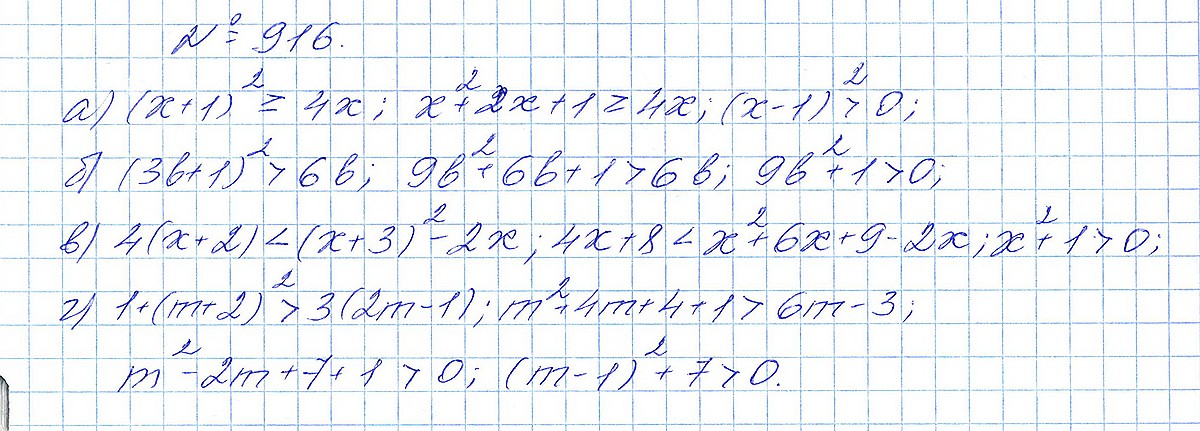 № 916.
а) (x+1)² ≥ 4x; x²+2x+1 ≥ 4x; (x-1)² > 0;
б) (3b+1)² > 6b; 9b²+6b+1 > 6b; 9b²+1 > 0;
в) 4(x+2) < (x+3)² - 2x; 4x+8 < x²+6x+9-2x; x²+1 > 0;
г) 1+(m+2)² > 3(2m-1); m²+4m+4+1 > 6m-3;
m²-2m+7+1 > 0; (m-1)²+7 > 0.